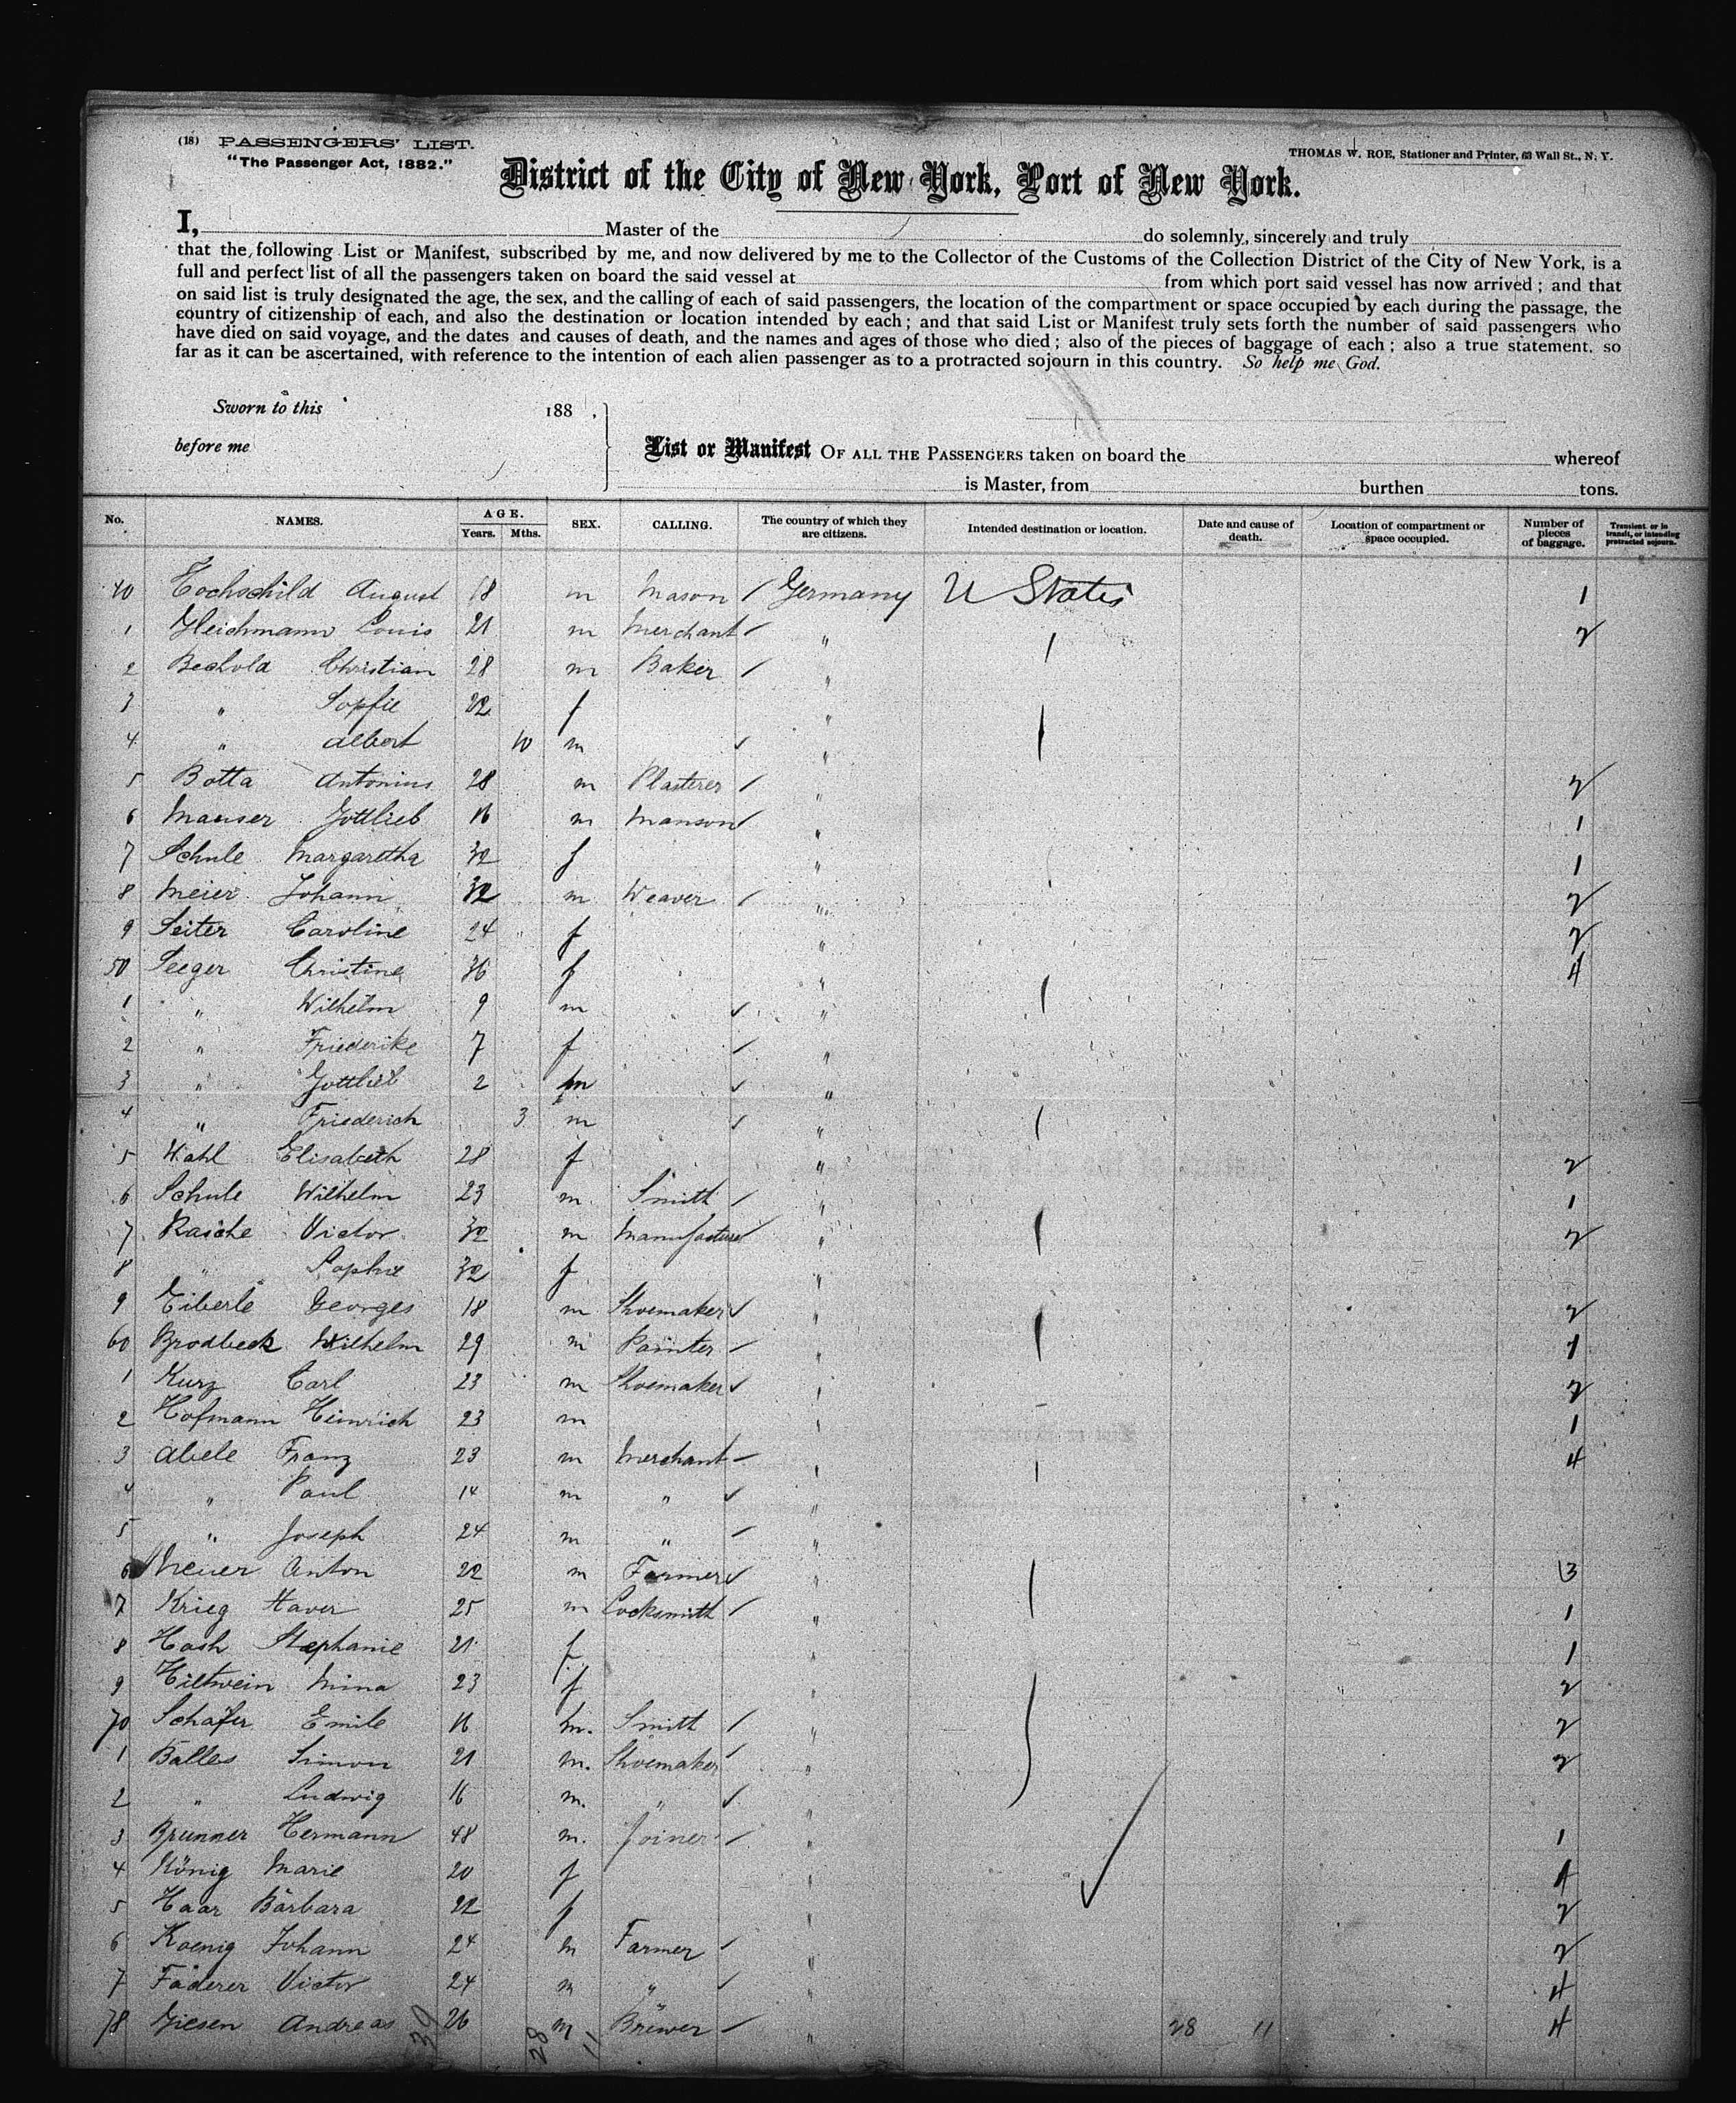 (18) PASSENGERS' LIST.
"The Passenger Act, 1882."
THOMAS W. ROE, Stationer and Printer, 63 Wall St., N. Y.
District of the City of New York, Port of New York.
I, Master of the do solemnly, sincerely and truly
that the following List or Manifest, subscribed by me, and now delivered by me to the Collector of the Customs of the Collection District of the City of New York, is a
full and perfect list of all the passengers taken on board the said vessel at from which port said vessel has now arrived; and that
on said list is truly designated the age, the sex, and the calling of each of said passengers, the location of the compartment or space occupied by each during the passage, the
country of citizenship of each, and also the destination or location intended by each; and that said List or Manifest truly sets forth the number of said passengers who
have died on said voyage, and the dates and causes of death, and the names and ages of those who died; also of the pieces of baggage of each; also a true statement, so
far as it can be ascertained, with reference to the intention of each alien passenger as to a protracted sojourn in this country. So help me God.
Sworn to this 188 ,
before me
List or Manifest OF ALL THE PASSENGERS taken on board the whereof
is Master, from burthen tons.
No. NAMES. AGE. Years. Mths. SEX. CALLING. The country of which they are citizens. Intended destination or location. Date and cause of death. Location of compartment or space occupied. Number of pieces of baggage. Transient or in transit, or intending protracted sojourn.
40 Hochschild August 18 m Mason / Germany U States 1
1 Gleichmann Louis 21 m Merchant / " 2
2 Bechold Christian 28 m Baker / "
3 " Sopfie 22 f "
4 " Albert 10 m "
5 Botta Antonius 28 m Plasterer / " 2
6 Manser Gottlieb 16 m Manson / " 1
7 Schule Margaretha 32 f " 1
8 Meier Johann 32 m Weaver / " 2
9 Seiter Caroline 24 f " 2
50 Seeger Christine 36 f " 4
1 " Wilhelm 9 m "
2 " Friederike 7 f "
3 " Gottlieb 2 m "
4 " Friederich 3 m "
5 Wahl Elisabeth 28 f " 2
6 Schule Wilhelm 23 m Smith / " 1
7 Rasche Victor 32 m Manufacturer " 2
8 " Sophie 32 f "
9 Eiberle Georges 18 m Shoemaker " 2
60 Brodbeck Wilhelm 29 m Painter " 1
1 Kurz Carl 23 m Shoemaker " 2
2 Hofmann Heinrich 23 m " 1
3 Abele Franz 23 m Merchant " 4
4 " Paul 14 m " "
5 " Joseph 24 m " "
6 Anton 22 m Farmer " 3
7 Krieg Xaver 25 m Locksmith / " 1
8 Hash Stephanie 21 f " 1
9 Hiltwein Mina 23 f " 2
70 Schäfer Emile 16 m. Smith / " 2
1 Balles Simon 21 m. Shoemaker " 2
2 " Ludwig 16 m. " "
3 Brunner Hermann 48 m. Joiner " 1
4 König Marie 20 f "
5 Haar Barbara 22 f " 2
6 Koenig Johann 24 m Farmer " 2
7 Faderer Victor 24 m " " 4
78 Giesen Andreas 26 m Brewer " 28 11 4
39 28 11